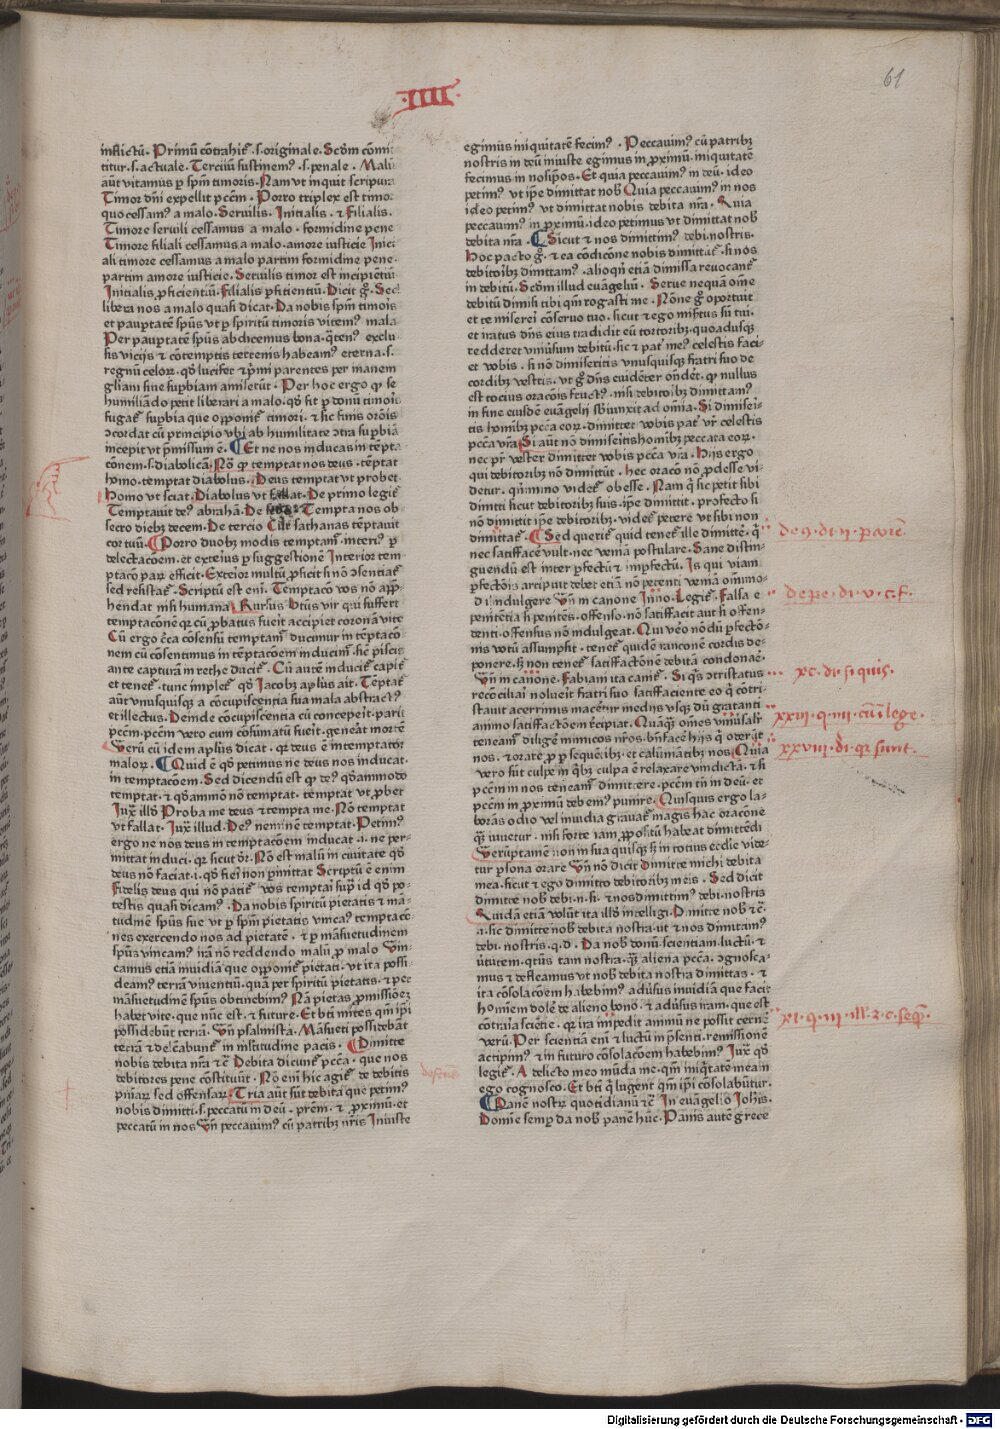 61
·IIII·
inflictū. Primū cōtrahit᷑ .s. originale. Scd̄m cōmit
titur .s. actuale. Terciū sustinem⁹ .s. penale. Malū
aūt vitamus p̲ spm̄ timoris. Nam vt inquit scriptura
Timor dn̄i expellit pccm̄. Porro triplex est timor
quo cessam⁹ a malo. Seruilis. Inicialis. ⁊ Filialis.
Timore seruili cessamus a malo. formidine pene
Timore filiali cessamus a malo. amore iusticie Inici
ali timore cessamus a malo partim formidine pene.
partim amore iusticie. Seruilis timor est incipiētiū
Inicialis ꝓficientiū. Filialis ꝑficientiū. Dicit g̊. Sed
libera nos a malo quasi dicat. Da nobis spm̄ timoris
et paup̲tatē spūs vt p̲ spiritū timoris vitem⁹ mala
Per paup̲tatē spūs abdicemus bona. q̄ten⁹ exclu
sis vicijs ⁊ cōtemptis terrenis habeam⁹ eterna .s.
regnū celoꝝ. qd̄ lucifer ⁊ p̲mi parentes per inanem
gl̄iam siue sup̲biam amiserūt. Per hoc ergo ꝙ se
humiliādo petit liberari a malo. qd̄ fit p̲ donū timoris
fugat᷑ sup̲bia que opponit᷑ timori. ⁊ sic finis orōis
ꝯcordat cū principio vbi ab humilitate ꝯtra sup̲biā
incepit vt p̲missum ē. Et ne nos inducas in tēpta
cōnem .s. diabolicā. Nō ꝙ temptat nos deus. tēptat
homo. temptat diabolus. Deus temptat vt probet
Homo vt sciat. Diabolus vt fallat. De primo legit᷑
Temptauit de⁹ abrahā. De
Tempta nos ob
secro diebꝫ decem. De tercio
sathanas tēptauit
Porro duobꝫ modis temptam᷑. interi⁹ p̲
delectacōem. et exteri⁹ p̲ suggestionē Interior tem
ptacō parū efficit. Exterior multū ꝓficit si nō ꝯsentiat᷑
sed resistat᷑. Scriptū est eni᷑. Temptacō vos nō app̲
hendat nisi humana. Rursus Btūs vir qui suffert
temptacōnē qꝛ cū ꝓbatus fuerit accipiet coronā vite
Cū ergo
nem cū cōsentimus in tēptacōem inducim᷑. sic piscis
ante capturā in rethe ducit᷑. Cū autē inducit᷑ capit᷑
et tenet᷑. tunc implet᷑ qd̄ Jacobꝫ apl̄us ait. Tēptat᷑
aūt vnusquisqꝫ a cōcupiscentia sua mala abstract⁹
et illectus. Deinde cōcupiscentia cū conceperit. parit
pccm̄. pccm̄ vero cum cōsumatū fuerit. generat mortē
Verū cū idem apl̄us dicat. qꝛ deus ē intemptator
maloꝝ. Quid ē qd̄ petimus ne deus nos inducat
in temptacōem. Sed dicendū est ꝙ de⁹ qd̄ammodo
temptat. ⁊ qd̄ammō nō temptat. temptat vt ꝓbet
Juxᵃ illd̄ Proba me deus ⁊ tempta me. Nō temptat
vt fallat. Juxᵃ illud. De⁹ neminē temptat. Petim⁹
ergo ne nos deus in temptacōem inducat .i. ne per-
mittat induci. qꝛ sicut dr̄. Nō est malū in ciuitate qd̄
deus nō faciat .i. qd̄ fieri non p̲mittat Scriptū ē enim
Fidelis deus qui nō patit᷑ vos temptari sup̲ id qd̄ po-
testis quasi dicam⁹. Da nobis spiritū pietatis ⁊ mā-
tudinē spūs siue vt p̲ spm̄ pietatis vincam⁹ temptacō
nes exercendo nos ad pietatē. ⁊ p̲ māsuetudinem
spūs vincam⁹ irā nō reddendo malū ꝓ malo Vin-
camus etiā inuidiā que opponit᷑ pietati. vt ita possi-
deam⁹ terrā viuentiū. quā per spiritū pietatis. ⁊ per
māsuetudinē spūs obtinebim⁹ Nā pietas ꝓmissiōeꝫ
habet vite. que nūc est. ⁊ future. Et bt̄i mites qm̄ ip̄i
possidebūt terrā. Vn̄ psalmista. Māsueti possidebūt
terrā ⁊ delectabunt᷑ in multitudine pacis. Dimitte
nobis debita nr̄a ⁊ c̄ Debita dicunt᷑ pccā. que nos
debitores pene cōstituūt. Nō eni᷑ hic agit᷑ de debitis
pecuniaꝝ sed offensaꝝ. Tria aūt sūt debita que petim⁹
nobis dimitti .s. peccatū in deū. prēm. ⁊ ꝓximū. et
peccatū in nos Vn̄ peccauim⁹ cū patribꝫ nr̄is Iniuste
egimus iniquitatē fecim⁹. Peccauim⁹ cū patribꝫ
nostris in deū iniuste egimus in ꝓximū. iniquitatē
fecimus in nosip̄os. Et quia peccauim⁹ in deū. ideo
petim⁹ vt ip̄e dimittat nob̄ Quia peccauim⁹ in nos
ideo petim⁹ vt dimittat nobis debita nr̄a. Quia
peccauim⁹ in ꝓximū. ideo petimus vt dimittat nob̄
debita nr̄a. Sicut ⁊ nos dimittim⁹ debi. nostris.
Hoc pacto g̊. ⁊ ea cōdicōne nobis dimittat᷑. si nos
debitoribꝫ dimittam⁹. alioqn̄ etiā dimissa reuocant᷑
in debitū. Scd̄m illud euāgeliū. Serue nequā om̄e
debitū dimisi tibi qm̄ rogasti me. Nōne g̊ oportuit
et te misereri cōseruo tuo. sicut ⁊ ego mis̄tus sū tui.
et iratus dn̄s eius tradidit eū tortoribꝫ. quoadusqꝫ
redderet vniūsum debitū. sic ⁊ pat̄ me⁹ celestis faci-
et vobis. si nō dimiseritis vnusquisqꝫ fratri suo de
cordibꝫ vestris. vt g̊ dn̄s euidēter ondēt. ꝙ nullus
est tocius oracōis fruct⁹. nisi debitoribꝫ dimittam⁹
in fine eiusdē euāgelij sb̄iunxit ad om̄ia. Si dimiseri-
tis hoīnibꝫ pccā eoꝝ. dimittet vobis pat̄ vr̄ celestis
pccā vr̄a Si aūt nō dimiseitis hominibꝫ peccata eoꝝ.
nec pr̄ vester dimittet vobis pccā vr̄a. Hijs ergo
qui debitoribꝫ nō dimittūt. hec oracō nō ꝓdesse vi-
detur. quinimmo videt᷑ obesse. Nam q̄ sic petit sibi
dimitti sicut debitoribꝫ suis. ip̄e dimittit. profecto si
nō dimittit ip̄e debitoribꝫ. videt᷑ petere vt sibi non
dimittat᷑. Sed querit᷑ quid tenet᷑ ille dimitte᷑. q̄
nec satisfacē vult. nec veniā postulare. Sane distin-
guendū est inter p̲fectū ⁊ imp̲fectū. Is qui viam
p̲fectōis arripuit debet etiā nō petenti veniā om̄imo-
di indulgere Vn̄ in canone Inno. Legit᷑. Falsa e
penitētia si penitēs. offenso. nō satisfacit aut si offen-
denti. offensus nō indulgeat. Qui vero nōdū p̲fectō-
nis votū assumpsit. tenet᷑ quidē rancorē cordis de-
ponere. sꝫ non tenet᷑ satisfactōnē debitā condonare.
Vn̄ in canone. Fabiani ita canit᷑. Si q̄s ꝯtristatus
recōciliari noluerit fratri suo satisfaciente eo q̄ cōtri-
stauit acerrimis maceretur medijs vsqꝫ dū gratanti
animo satisfactōem recipiat. Quāq̄ om̄es vniūsalr̄
teneam᷑ diligē inimicos nr̄os. bn̄facē hijs q̄ oderūt
nos. ⁊ orarē ꝓ p̲sequētibꝫ. et calūniātibꝫ nos. Quia
vero sūt culpe in q̄bꝫ culpa ē relaxare vindictā. ⁊ si
pccm̄ in nos teneam᷑ dimittere. pccm̄ tn̄ in deū. et
pccm̄ in ꝓximū debem⁹ punire. Quisquis ergo la-
borās odio vel inuidia grauat᷑ magis hac oracōne
q̄ iuuetur. nisi forte iam ꝓpositū habeat dimittēdi
Verūptamē non in sua quisqꝫ sꝫ in totius ecclie vide-
tur p̲sona orare Vn̄ nō dicit Dimitte michi debita
mea. sicut ⁊ ego dimitto debitoribꝫ meis. Sed dicit
dimitte nob̄ debi. n. si. ⁊ nos dimittim⁹ debi. nostris
Quidā etiā volūt ita illd̄ intelligi. Dimitte nob̄ ⁊ c̄.
.i. sic dimitte nob̄ debita nostra. ut ⁊ nos dimittam⁹
debi. nostris. q. d. Da nob̄ donū scientiam. luctū. ⁊
ūtutem. qtūs tam nostra. q̄ aliena pccā. ꝯgnosca-
mus ⁊ defleamus vt nob̄ debita nostra dimittas. ⁊
ita cōsolacōem habebim⁹ aduīsus inuidiam que facit
hoīnem dolē de alieno bono. ⁊ aduīsus iram. que est
cōtraria sciētie. qꝛ ira impedit animū ne possit cernē
verū. Per scientiā eni᷑ ⁊ luctū in p̲senti. remissionē
accipim⁹ ⁊ in futuro cōsolacōem habebim⁹ Juxᵃ qd̄
legit᷑. A delicto meo mūda me. qm̄ iniq̄tatē meam
ego cognosco. Et bt̄i q̄ lugent qm̄ ip̄i cōsolabūtur.
Panē nostrū quotidianū ⁊ c̄ In euāgelio Joh̄is.
Domine semp̲ da nob̄ panē hūc. Panis autē grece
xxviii · di · qꝛ sunt ·